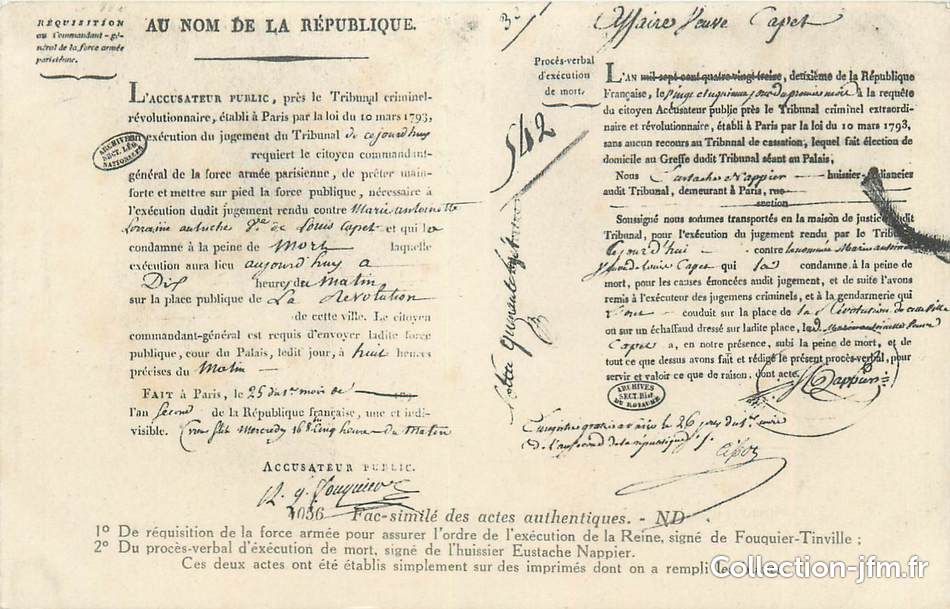 RÉQUISITION
au Commandant-gé-
néral de la force armée
parisienne.
AU NOM DE LA RÉPUBLIQUE.
L'ACCUSATEUR PUBLIC, près le Tribunal criminel-
révolutionnaire, établi à Paris par la loi du 10 mars 1793,
exécution du jugement du Tribunal de cejourdhuy
requiert le citoyen commandant-
général de la force armée parisienne, de prêter main-
forte et mettre sur pied la force publique, nécessaire à
l'exécution dudit jugement rendu contre Marie antoinette
Lorraine autriche Ve. de Louis Capet et qui la
condamne à la peine de Mort laquelle
exécution aura lieu aujourd'huy a
Dix heures du Matin
sur la place publique de La Révolution
de cette ville. Le citoyen
commandant-général est requis d'envoyer ladite force
publique, cour du Palais, ledit jour, à huit heures
précises du Matin
FAIT à Paris, le 25 du 1er mois de
l'an Second de la République française, une et indi-
visible. Mercredy 16 8bre cinq heures du Matin
ACCUSATEUR PUBLIC.
A. q. fouquier
ARCHIVES
SECT. LÉG.
NATIONALES
3e
Affaire Veuve Capet
542
Procès-verbal
d'exécution
de mort.
L'AN mil sept cent quatre vingt treize, deuxième de la République
Française, le vingt cinquieme jour du premier mois à la requête
du citoyen Accusateur public près le Tribunal criminel extraordi-
naire et révolutionnaire, établi à Paris par la loi du 10 mars 1793,
sans aucun recours au Tribunal de cassation, lequel fait élection de
domicile au Greffe dudit Tribunal séant au Palais,
Nous Eustache Nappier huissier-audiancier
audit Tribunal, demeurant à Paris, rue
section
Soussigné nous sommes transportés en la maison de justice dudit
Tribunal, pour l'exécution du jugement rendu par le Tribunal
cejourd'hui contre la nommée Marie antoinette
Veuve de louis Capet qui la condamne à la peine de
mort, pour les causes énoncées audit jugement, et de suite l'avons
remis à l'exécuteur des jugemens criminels, et à la gendarmerie qui
l'ont conduit sur la place de la Révolution de cette ville
ou sur un échaffaud dressé sur ladite place, lad. Marie antoinette Veuve
Capet a, en notre présence, subi la peine de mort, et de
tout ce que dessus avons fait et rédigé le présent procès-verbal, pour
servir et valoir ce que de raison, dont acte.
Nappier
ARCHIVES
SECT. Hist
DU ROYAUME
Enregistré gratis à Paris le 26 jour du 1er mois
de l'an second de la république
1036 Fac-similé des actes authentiques. - ND
1° De réquisition de la force armée pour assurer l'ordre de l'exécution de la Reine, signé de Fouquier-Tinville ;
2° Du procès-verbal d'éxécution de mort, signé de l'huissier Eustache Nappier.
Ces deux actes ont été établis simplement sur des imprimés dont on a rempli les
Collection-jfm.fr